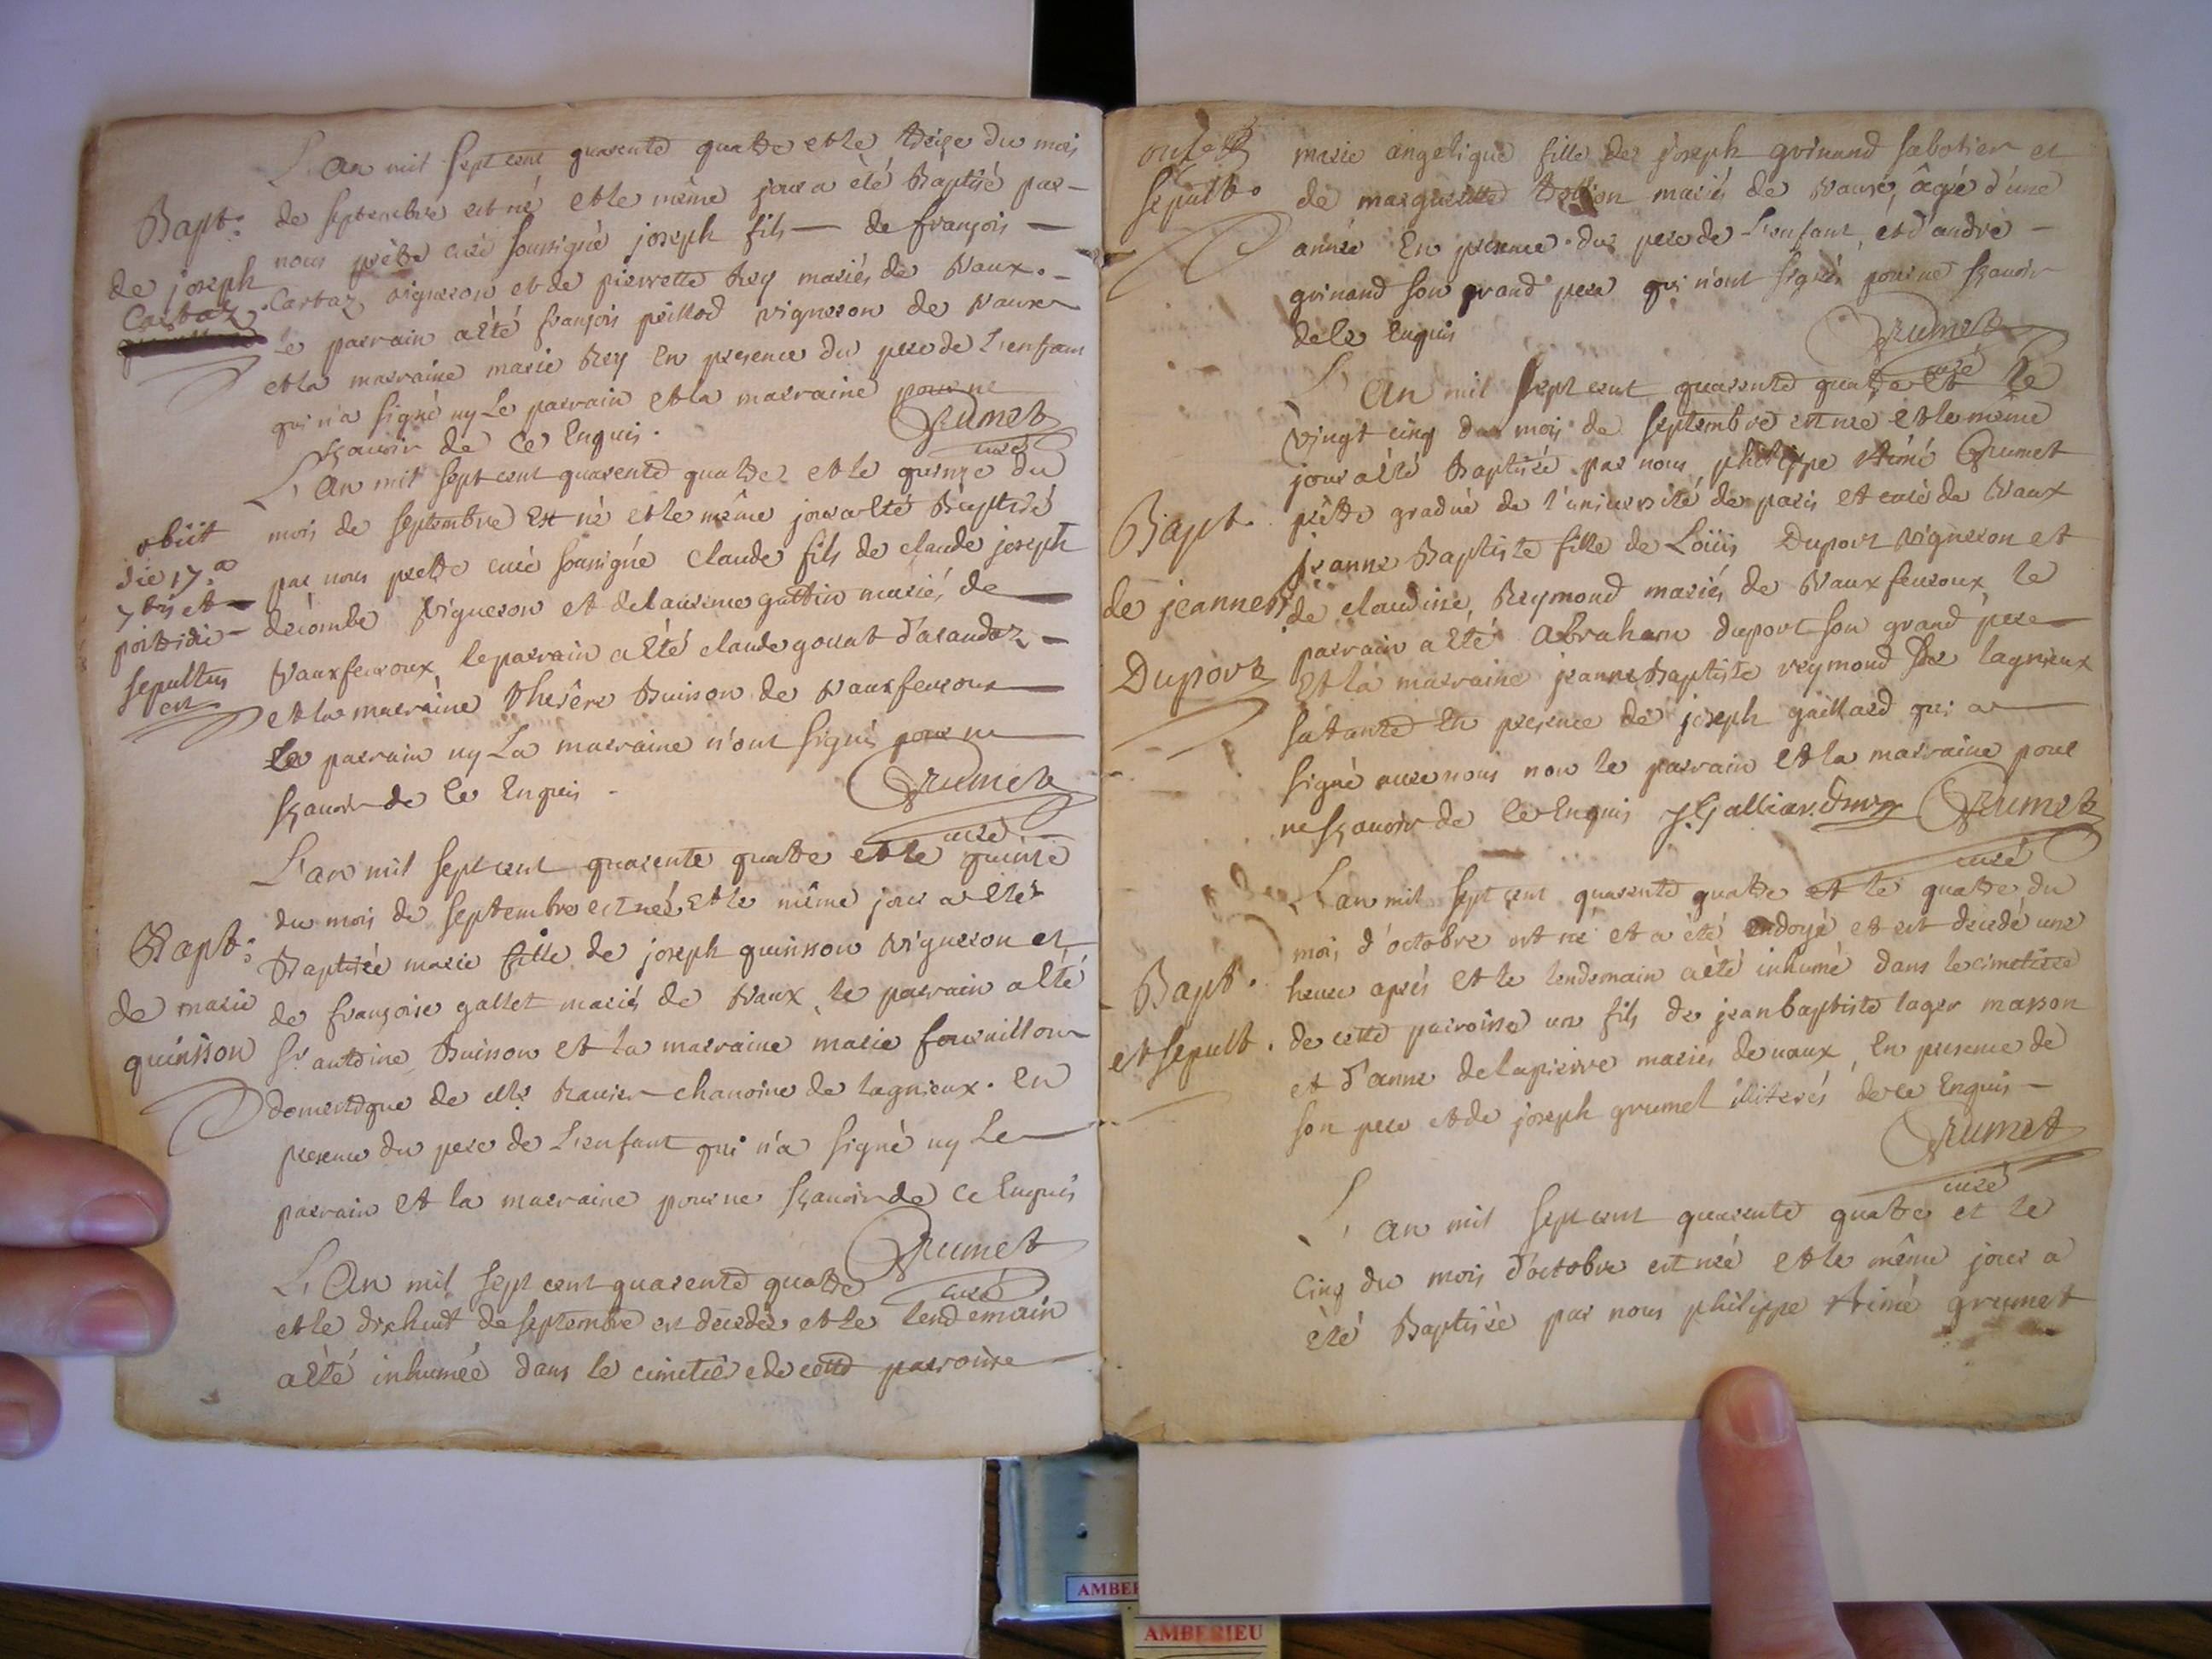 L'an mil sept cent quarente quattre et le treize du mois
Bapt: de septembre est né et le même jour a été Baptisé par
de joseph nous prêtre curé soussigné joseph fils de françois
Cartaz Cartaz vigneron et de pierrette Rey mariés de Vaux.
le parrain a été françois peillod vigneron de vaux
et la marraine marie Rey En presence du pere de L'enfant
qui n'a signé ny Le parrain et la marraine pour ne
sçavoir de ce Enquis. Grumet
curé
L'An mil sept cent quarente quattre et le quinze du
obiit mois de septembre Est né et le même jour a été Baptisé
die 17.a par nous prettre curé soussigné Claude fils de claude joseph
7bris et décombe vigneron et de laurence guttin mariés de
postridie Vauxfevroux, le parrain a été claude gouat d'arandaz
sepultus et la marraine Therése Buisson de Vauxfevroux
est
Le parrain ny La marraine n'ont signés pour ne
sçavoir de ce Enquis. Grumet
curé
L'an mil sept cent quarente quattre et le quinze
du mois de septembre est née et le même jour a été
Bapt: Baptisée marie fille de joseph quinson vigneron et
de marie de françoise gallet mariés de Vaux, le parrain a été
quinson Sr. antoine Buisson et la marraine marie
domestique de Mr. Ravier chanoine de lagnieux. En
presence du pere de L'enfant qui n'a signé ny Le
parrain et la marraine pour ne sçavoir de ce Enquis
Grumet
curé
L'An mil sept cent quarente quattre
et le dixhuit de septembre est decedée et le lendemain
a été inhumée dans le cimetiére de cette parroisse
sepult. marie angelique fille de joseph guinand sabotier et
de margueritte mariés de vaux, âgée d'une
année En presence du pere de L'enfant, et d'andré
guinand son grand pere qui n'ont signés pour ne sçavoir
de ce Enquis Grumet
curé
L'An mil sept cent quarente quattre et le
vingt cinq du mois de septembre est née et le même
jour a été Baptisée par nous philippe Aimé Grumet
Bapt. prêttre gradué de l'université de paris et curé de Vaux
jeanne Baptiste fille de Loüis Duport vigneron et
de jeanne B. de claudine Reymond mariés de Vauxfevroux, le
Duport parrain a été Abraham duport son grand pere
Et la marraine jeanne Baptiste reymond de lagnieux
sa tante En presence de joseph gaillard qui a
signé avec nous non le parrain et la marraine pour
ne sçavoir de ce Enquis J. Galliard Grumet
curé
L'an mil sept cent quarente quattre et le quattre du
mois d'octobre est né et a été endoyé et est decedé une
Bapt. heure aprés et le lendemain a été inhumé dans le cimetiere
et sepult. de cette parroisse un fils de jean baptiste lager masson
et d'anne delapierre mariés de vaux, En presence de
son pere et de joseph grumet illiterés de ce Enquis
Grumet
curé
L'an mil sept cent quarente quattre et le
cinq du mois d'octobre est née et le même jour a
été Baptisée par nous philippe Aimé grumet
AMBERIEU